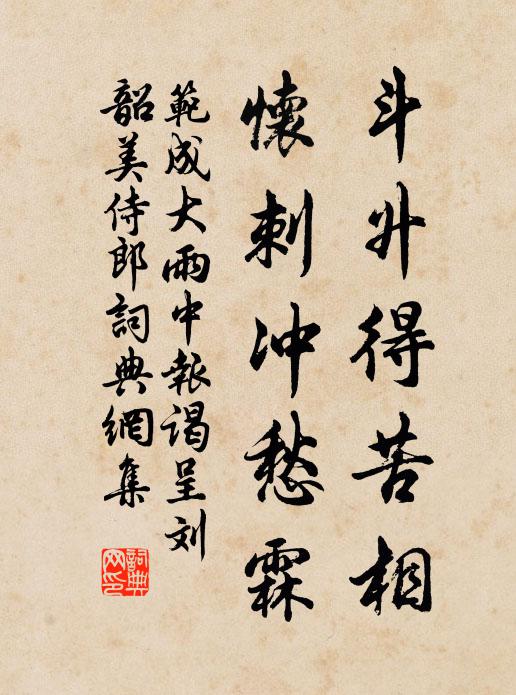 斗升得苦相
懷刺冲愁霖
範成大雨中報謁呈刘
韶美侍郎詞典網集
詞典網印